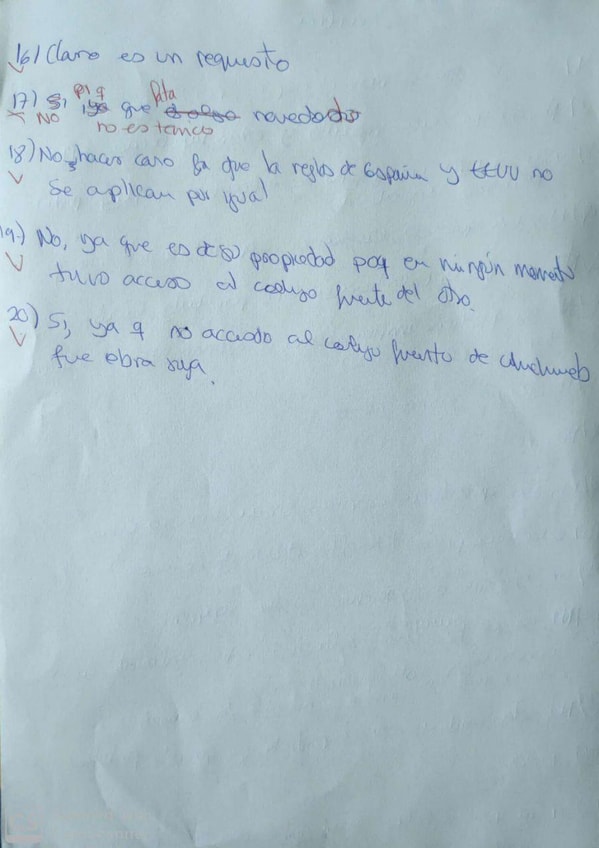 16) Claro es un requisto
17) Si, ya que es algo novedado
NO pq falta
no es tanco
18) No, hacer caso ya que la reglas de España y EEUU no
se aplican por igual
19.) No, ya que es de su propiedad poq en ningún momento
tuvo acceso al codigo fuente del otro.
20) Si, ya q no accedio al codigo fuente de
fue obra suya.